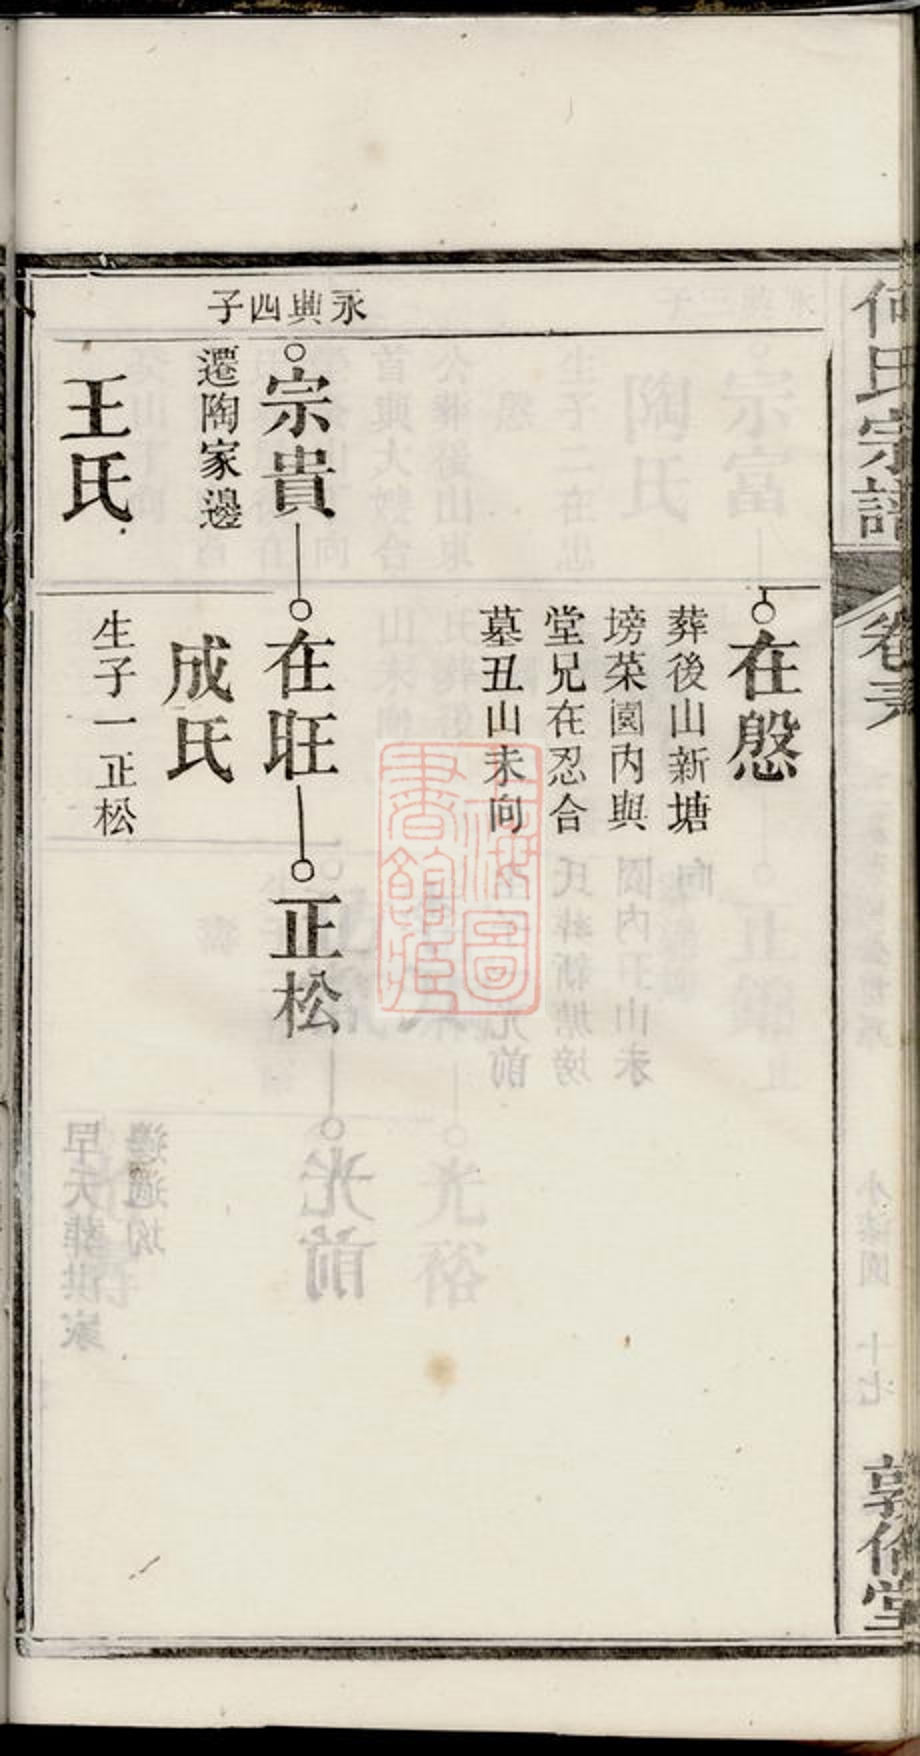 何氏宗譜
敦倫堂
永興四子
在慇
葬後山新塘
塝菜園内與
堂兄在忍合
墓丑山未向
宗貴
遷陶家邊
王氏
在旺
成氏
生子一正松
正松
上海圖書館藏